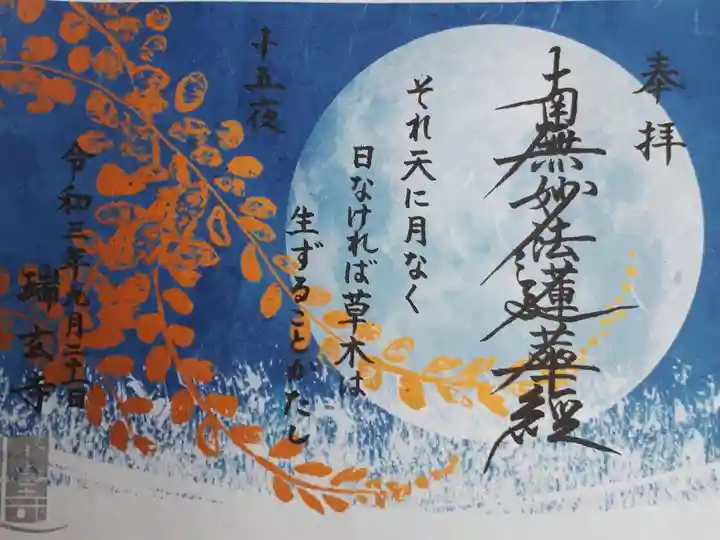 奉拝
南無妙法蓮華経
それ天に月なく
日なければ草木は
生ずることかたし
十五夜
令和三年九月二十一日
瑞玄寺